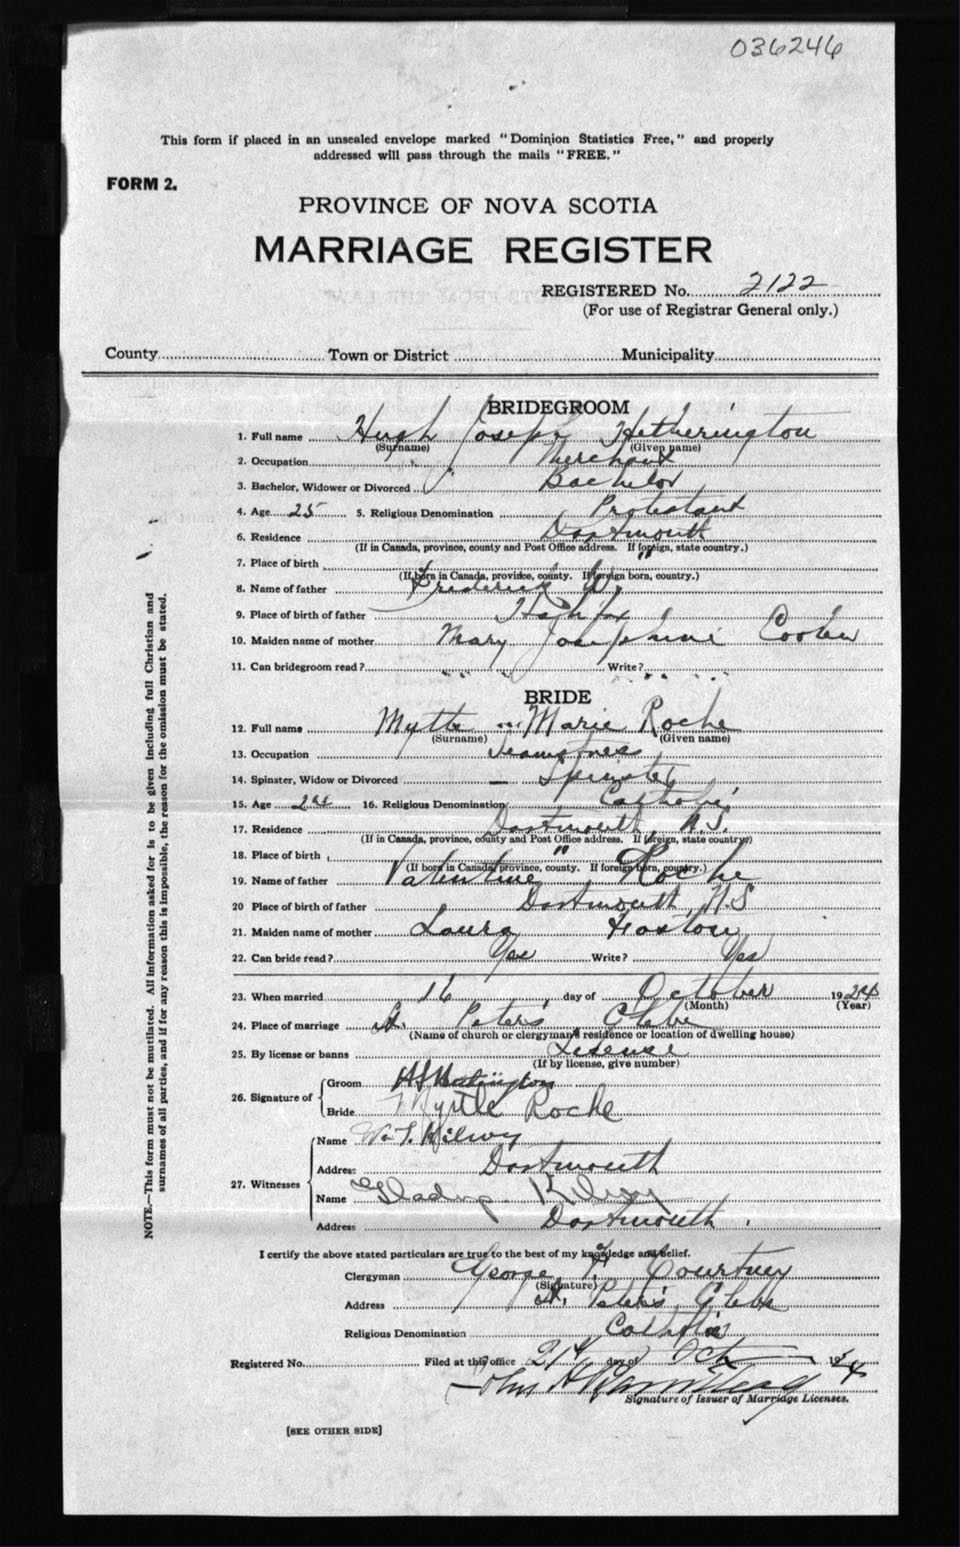 036246
This form if placed in an unsealed envelope marked "Dominion Statistics Free," and properly
addressed will pass through the mails "FREE."
FORM 2.
PROVINCE OF NOVA SCOTIA
MARRIAGE REGISTER
REGISTERED No. 2122
(For use of Registrar General only.)
County Town or District Municipality
BRIDEGROOM
1. Full name Hugh Joseph Hetherington
(Surname) (Given name)
2. Occupation Merchant
3. Bachelor, Widower or Divorced Bachelor
4. Age 25 5. Religious Denomination Protestant
6. Residence Dartmouth
(If in Canada, province, county and Post Office address. If foreign, state country.)
7. Place of birth "
(If born in Canada, province, county. If foreign born, country.)
8. Name of father Frederick W.
9. Place of birth of father Halifax
10. Maiden name of mother Mary Josephine
11. Can bridegroom read? " Write? "
BRIDE
12. Full name Myrtle Marie Roche
(Surname) (Given name)
13. Occupation Seamstress
14. Spinster, Widow or Divorced – Spinster
15. Age 24 16. Religious Denomination Catholic
17. Residence Dartmouth, N.S.
(If in Canada, province, county and Post Office address. If foreign, state country)
18. Place of birth "
(If born in Canada, province, county. If foreign born, country.)
19. Name of father Valentine Roche
20 Place of birth of father Dartmouth, N.S
21. Maiden name of mother Laura
22. Can bride read? Yes Write? Yes
23. When married 16 day of October 1924
(Month) (Year)
24. Place of marriage St. Peter's Glebe
(Name of church or clergyman's residence or location of dwelling house)
25. By license or banns License
(If by license, give number)
26. Signature of Groom
Bride Myrtle Roche
27. Witnesses Name W. T. Kilroy
Address Dartmouth
Name Gladys Kilroy
Address Dartmouth.
I certify the above stated particulars are true to the best of my knowledge and belief.
Clergyman George Courtney
(Signature)
Address St. Peter's Glebe
Religious Denomination Catholic
Registered No. Filed at this office 21st day of Oct 1924
John H
Signature of Issuer of Marriage Licenses.
[SEE OTHER SIDE]
NOTE.—This form must not be mutilated. All information asked for is to be given including full Christian and
surnames of all parties, and if for any reason this is impossible, the reason for the omission must be stated.